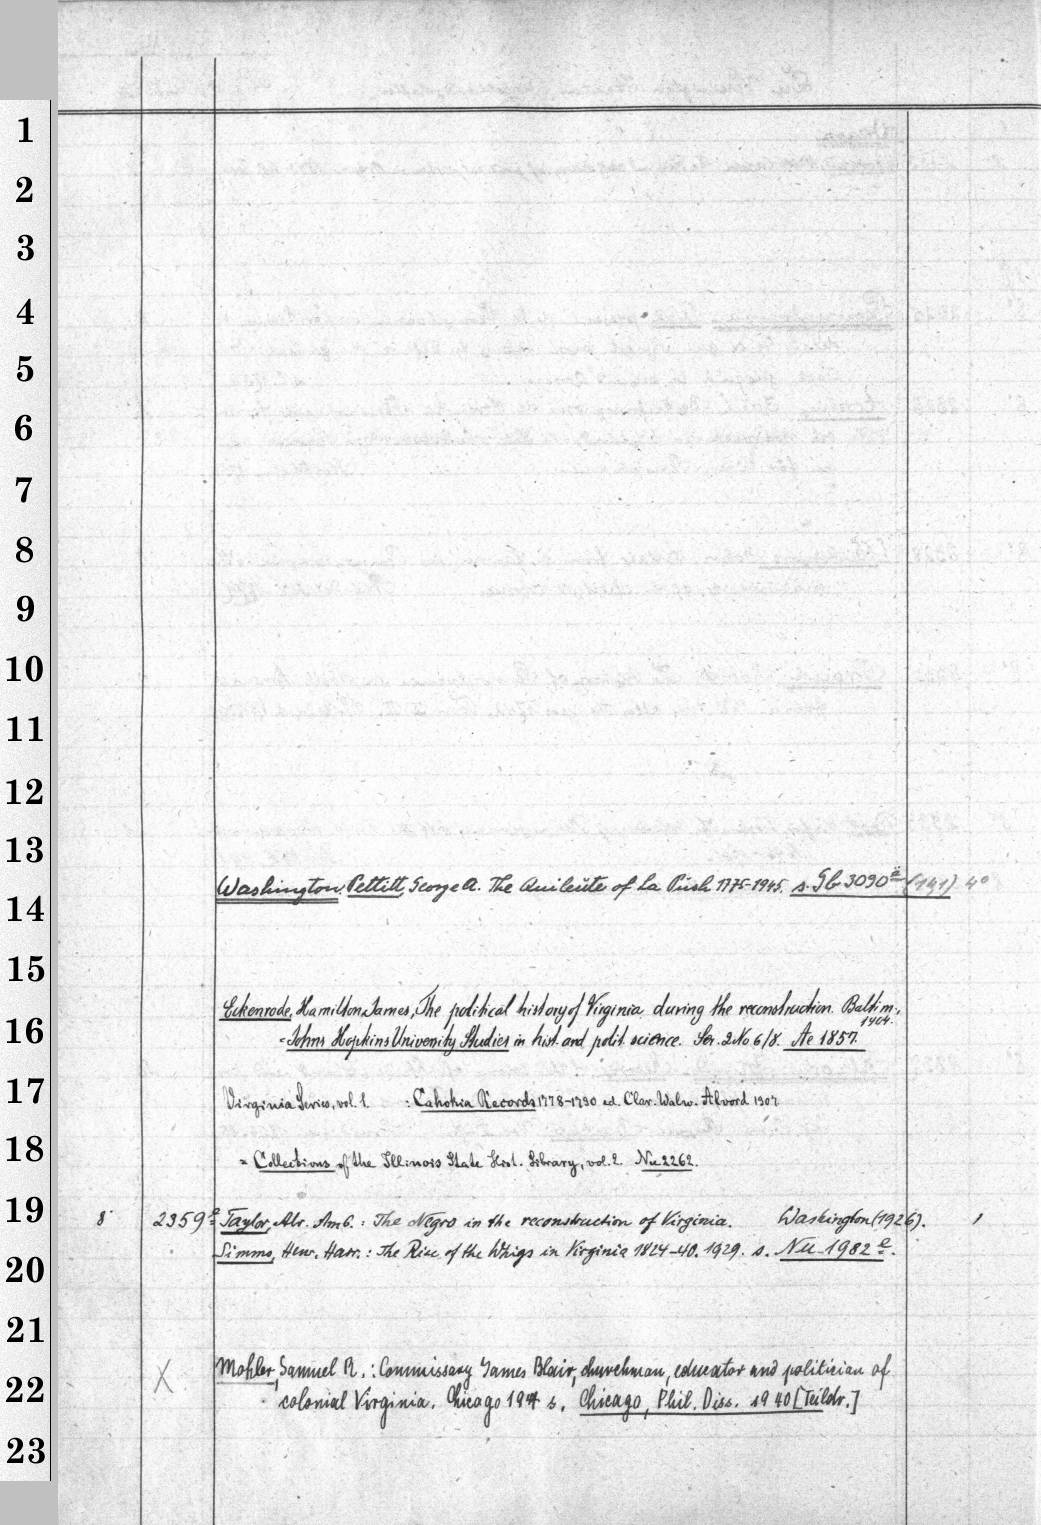 1
2
3
4
5
6
7
8
9
10
11
12
13
Washington, Pettitt, George A. The Quileute of La Push 1775-1945. s. Gb 3090 (141) 4°
14
15
Eckenrode, Hamilton James, The political history of Virginia during the reconstruction. Baltim.,
1904.
16
=Johns Hopkins University Studies in hist. and polit. science. Ser. 2 No 6/8. Ae 1857.
17
Virginia Series, vol. 1. : Cahokia Records 1778-1790 ed. Clar. Walw. Alvord 1907
18
= Collections of the Illinois State Hist. Library, vol. 2. Nu 2262.
19
8° 2359 Taylor, Alr. Amb. : The Negro in the reconstruction of Virginia. Washington (1926). 1
Simms, Henr. Harr. : The Rise of the Whigs in Virginia 1824-40. 1929. s. Nu 1982 e.
20
21
X Mohler, Samuel R. : Commissary James Blair, churchman, educator and politician of
22
colonial Virginia. Chicago s. Chicago, Phil. Diss. 1940 [Teildr.]
23